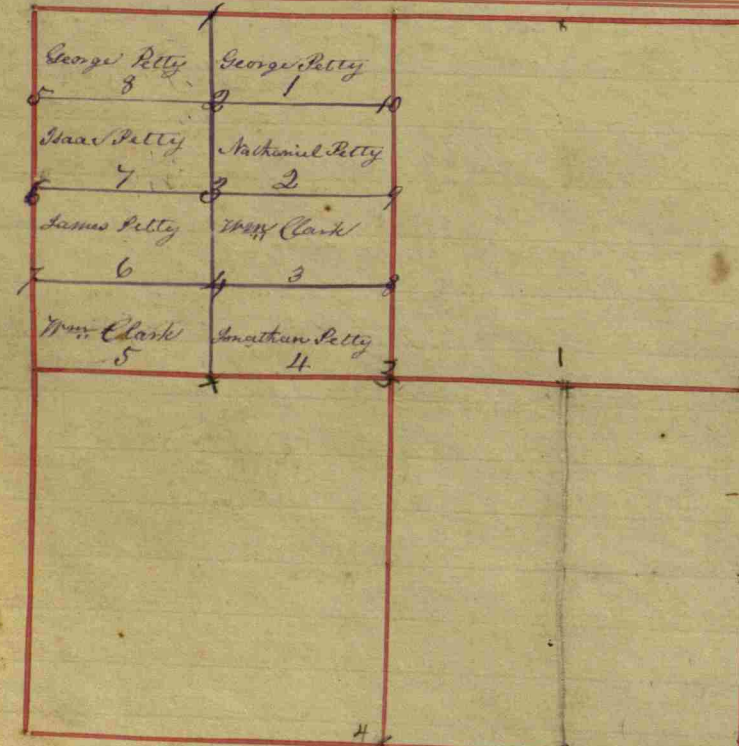 1
George Petty
8
George Petty
1
5
2
10
Isaac Petty
7
Nathaniel Petty
2
6
3
9
James Petty
6
Wm Clark
3
7
4
8
Wm Clark
5
Jonathan Petty
4
3
1
4